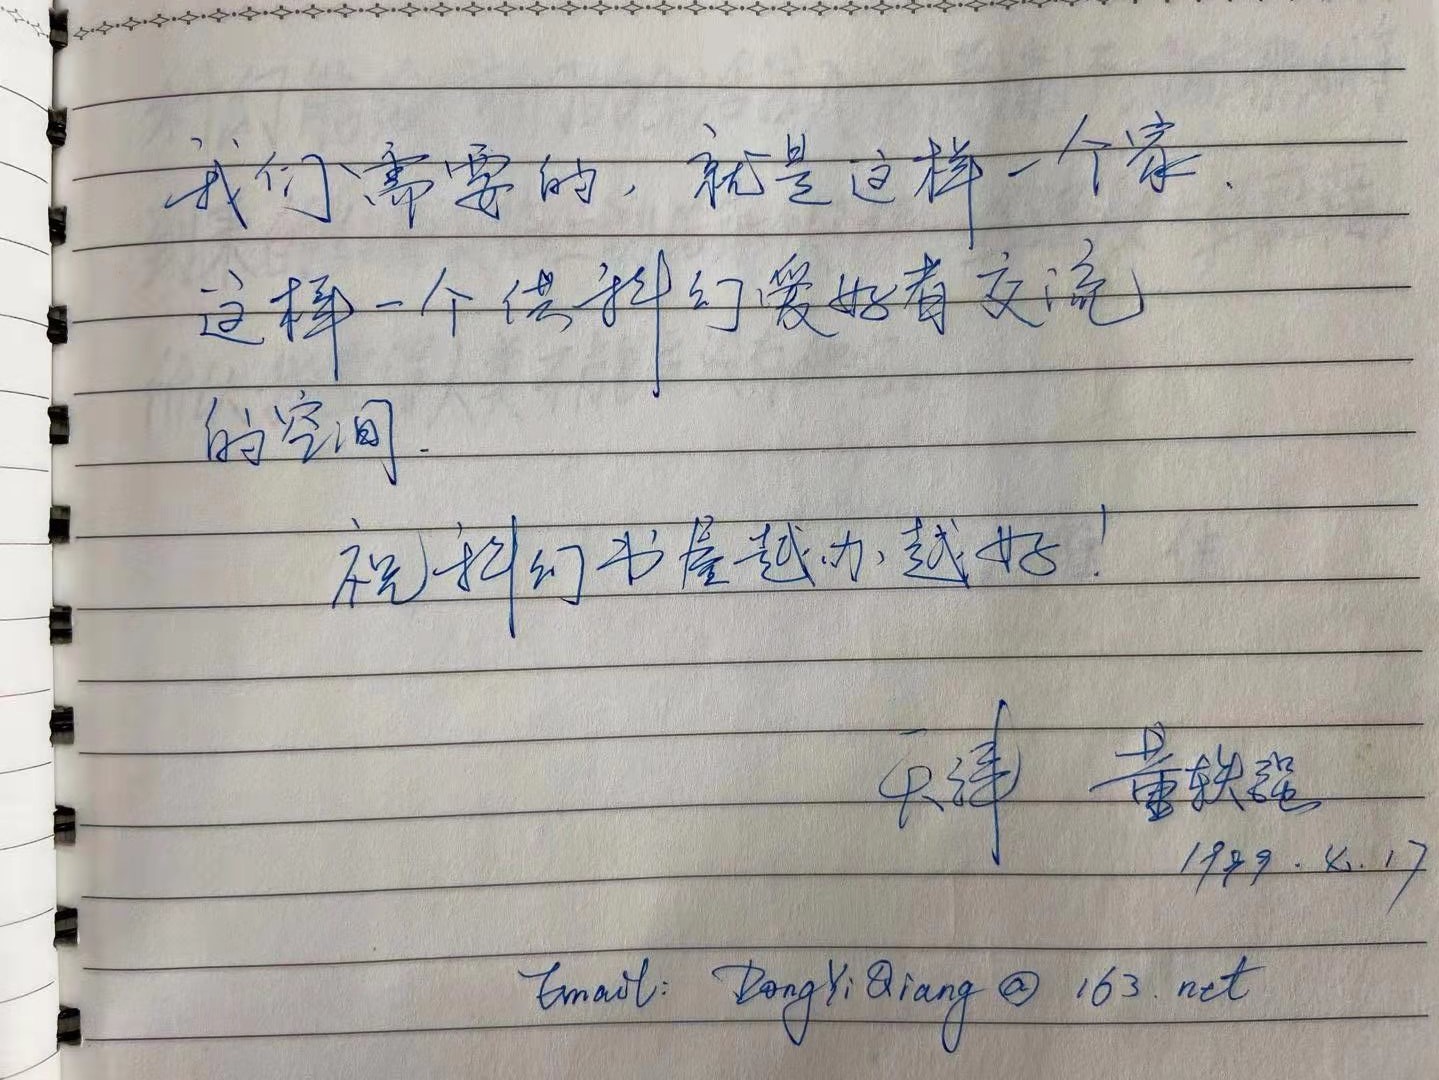 我们需要的，就是这样一个家.
这样一个供科幻爱好者交流
的空间.
祝科幻书屋越办越好！
天津 董轶强
1999.4.17
Email: DongYiQiang@163.net